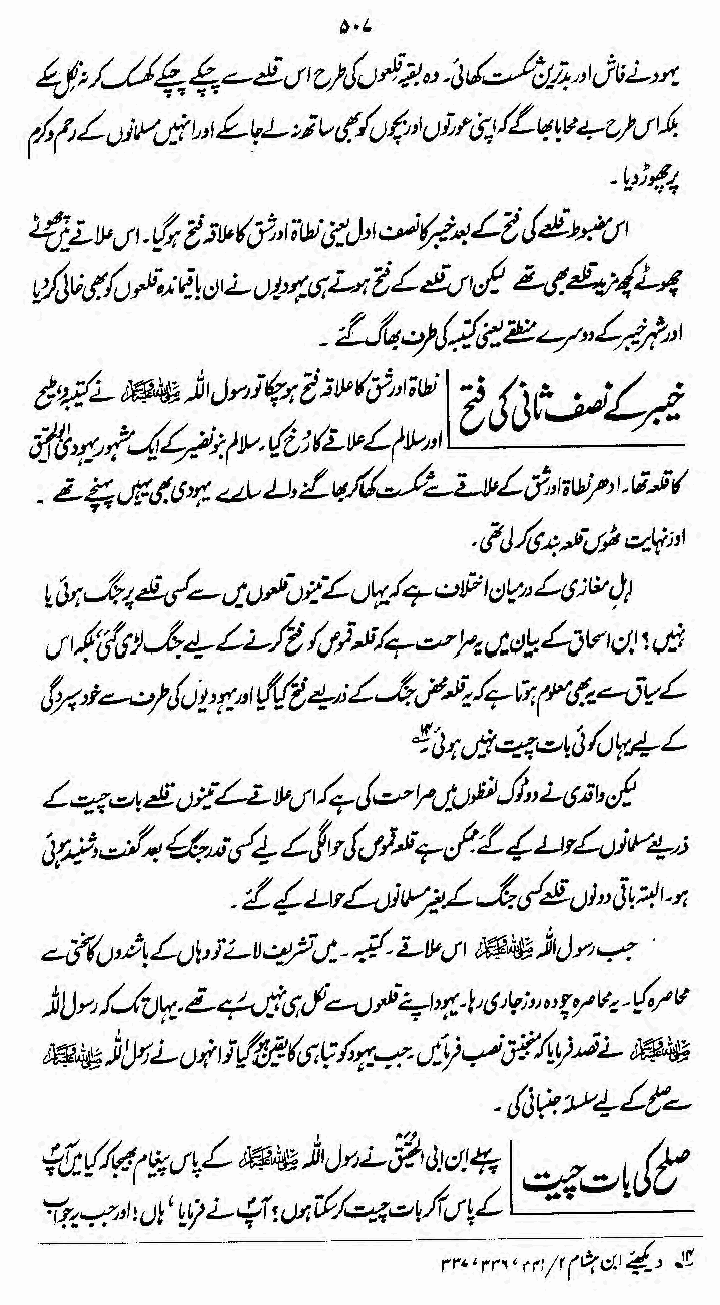 ۵۰۷
یہود نے فاش اور بدترین شکست کھائی۔ وہ بقیہ قلعوں کی طرح اس قلعے سے چپکے چپکے کھسک کر نہ نکل سکے
بلکہ اس طرح بے محابا بھاگے کہ اپنی عورتوں اور بچوں کو بھی ساتھ نہ لے جا سکے اور انہیں مسلمانوں کے رحم و کرم
پر چھوڑ دیا ۔
اس مضبوط قلعے کی فتح کے بعد خیبر کا نصف اول یعنی نطاۃ اور شق کا علاقہ فتح ہوگیا۔ اس علاقے میں چھوٹے
چھوٹے کچھ مزید قلعے بھی تھے لیکن اس قلعے کے فتح ہوتے ہی یہودیوں نے ان باقیماندہ قلعوں کو بھی خالی کر دیا
اور شہر خیبر کے دوسرے منطقے یعنی کتیبہ کی طرف بھاگ گئے ۔
خیبر کے نصف ثانی کی فتح
نطاۃ اور شق کا علاقہ فتح ہو چکا تو رسول اللہ ﷺ نے کتیبہ، وطیح
اور سلالم کے علاقے کا رُخ کیا۔ سلالم بنو نضیر کے ایک مشہور یہودی ابو الحقیق
کا قلعہ تھا۔ ادھر نطاۃ اور شق کے علاقے سے شکست کھا کر بھاگنے والے سارے یہودی بھی یہیں پہنچے تھے ۔
اور نہایت ٹھوس قلعہ بندی کر لی تھی۔
اہلِ مغازی کے درمیان اختلاف ہے کہ یہاں کے تینوں قلعوں میں سے کسی قلعے پر جنگ ہوئی یا
نہیں؟ ابن اسحاق کے بیان میں یہ صراحت ہے کہ قلعہ قموص کو فتح کرنے کے لیے جنگ لڑی گئی، بلکہ اس
کے سیاق سے یہ بھی معلوم ہوتا ہے کہ یہ قلعہ محض جنگ کے ذریعے فتح کیا گیا اور یہودیوں کی طرف سے خود سپردگی
کے لیے یہاں کوئی بات چیت نہیں ہوئی۔ ۱۴
لیکن واقدی نے دوٹوک لفظوں میں صراحت کی ہے کہ اس علاقے کے تینوں قلعے بات چیت کے
ذریعے مسلمانوں کے حوالے کیے گئے۔ ممکن ہے قلعہ قموص کی حوالگی کے لیے کسی قدر جنگ کے بعد گفت و شنید ہوئی
ہو۔ البتہ باقی دونوں قلعے کسی جنگ کے بغیر مسلمانوں کے حوالے کیے گئے ۔
جب رسول اللہ ﷺ اس علاقے ۔ کتیبہ ۔ میں تشریف لائے تو وہاں کے باشندوں کا سختی سے
محاصرہ کیا۔ یہ محاصرہ چودہ روز جاری رہا۔ یہود اپنے قلعوں سے نکل ہی نہیں رہے تھے۔ یہاں تک کہ رسول اللہ
ﷺ نے قصد فرمایا کہ منجنیق نصب فرمائیں۔ جب یہود کو تباہی کا یقین ہو گیا تو انہوں نے رسول اللہ ﷺ
سے صلح کے لیے سلسلہ جنبانی کی ۔
صلح کی بات چیت
پہلے ابن ابی الحُقَیق نے رسول اللہ ﷺ کے پاس پیغام بھیجا کہ کیا میں آپؐ
کے پاس آکر بات چیت کر سکتا ہوں؟ آپؐ نے فرمایا، ہاں! اور جب یہ جواب
۱۴ دیکھئے ابن ہشام ۲/ ۳۳۱، ۳۳۶، ۳۳۷